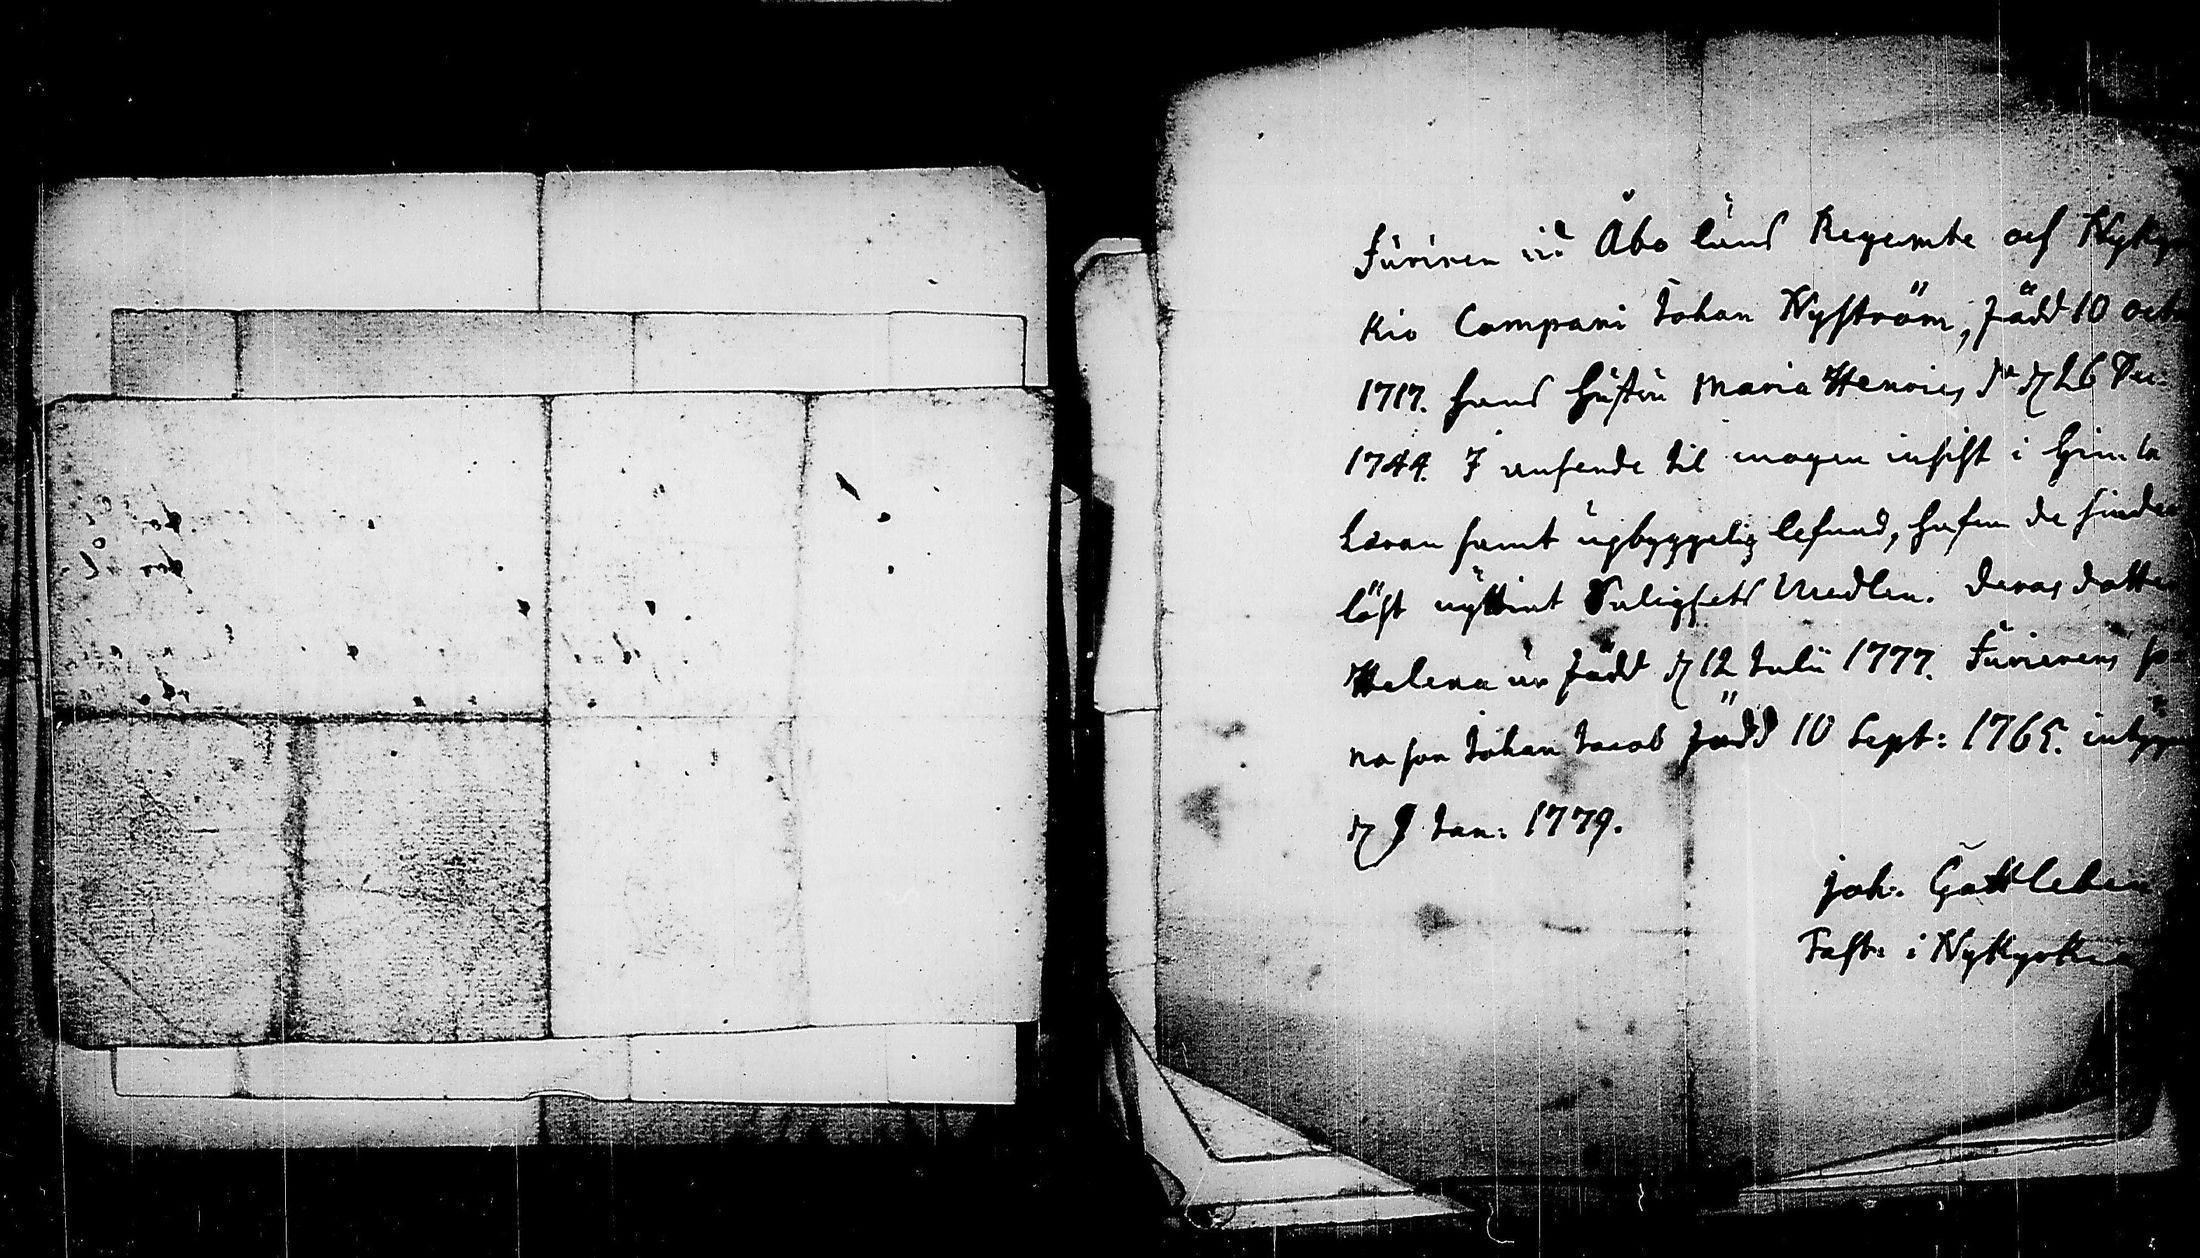 Furiren vid Åbo läns Regemte och Nykyr
kio Compani Johan Nyström, född 10 octo
1717. hans hustru Maria Henrics dr d 26 Dec:
1744. Ägande til mogen insikt i Himla
Läran samt upbyggelig lefnad, hafva de sinde
löst nyttjat Salighets Medlen. Deras dotter
Helena är född d 12 Julii 1777. Furirens
na son Johan Jacob född 10 Sept: 1765. intyga
d 9 Jan: 1779.
Joh. Gottleben
Past: i Nykyrko